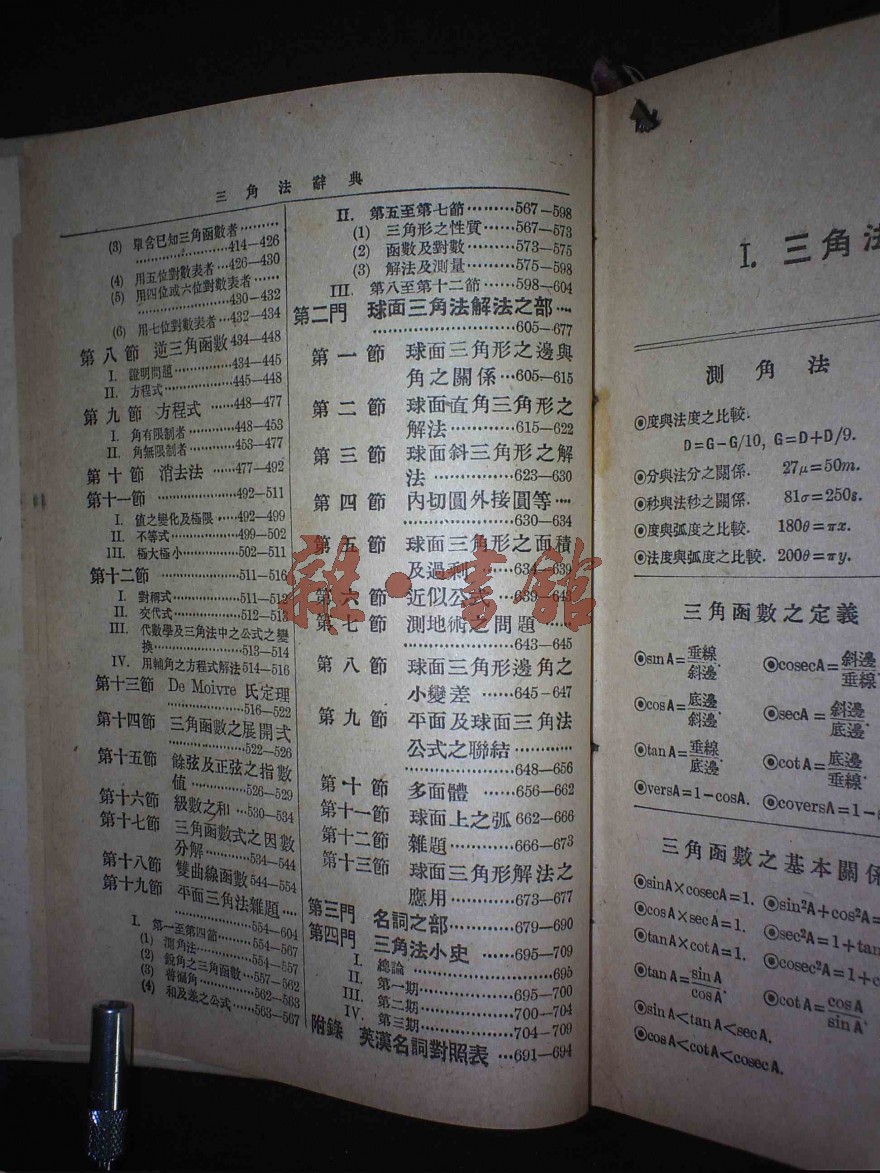 三角法辭典
(3) 單含已知三角函數者………
…………………414—426
(4) 用五位對數表者…426—430
(5) 用四位或六位對數表者……
…………………430—432
(6) 用七位對數表者…432—434
第八節 逆三角函數 434—448
I. 證明問題……………434—445
II. 方程式………………445—448
第九節 方程式 ……448—477
I. 角有限制者…………448—453
II. 角無限制者…………453—477
第十節 消去法 ……477—492
第十一節 ………………492—511
I. 值之變化及極限……492—499
II. 不等式………………499—502
III. 極大極小……………502—511
第十二節 ………………511—516
I. 對稱式………………511—512
II. 交代式………………512—513
III. 代數學及三角法中之公式之變
換……………………513—514
IV. 用輔角之方程式解法514—516
第十三節 De Moivre 氏定理
…………………516—522
第十四節 三角函數之展開式
…………………522—526
第十五節 餘弦及正弦之指數
值………………526—529
第十六節 級數之和…530—534
第十七節 三角函數式之因數
分解……………534—544
第十八節 雙曲線函數 544—554
第十九節 平面三角法雜題…
…………………554—604
I. 第一至第四節………554—567
(1) 測角法………………554—557
(2) 銳角之三角函數……557—562
(3) 普遍角………………562—563
(4) 和及差之公式………563—567
II. 第五至第七節………567—598
(1) 三角形之性質………567—573
(2) 函數及對數…………573—575
(3) 解法及測量…………575—598
III. 第八至第十二節……598—604
第二門 球面三角法解法之部…
…………………605—677
第一節 球面三角形之邊與
角之關係…605—615
第二節 球面直角三角形之
解法………615—622
第三節 球面斜三角形之解
法…………623—630
第四節 內切圓外接圓等…
…………………630—634
第五節 球面三角形之面積
及過剩……634—639
第六節 近似公式…639—643
第七節 測地術之問題……
…………………643—645
第八節 球面三角形邊角之
小變差……645—647
第九節 平面及球面三角法
公式之聯結…………
…………………648—656
第十節 多面體……656—662
第十一節 球面上之弧 662—666
第十二節 雜題………666—673
第十三節 球面三角形解法之
應用………673—677
第三門 名詞之部………679—690
第四門 三角法小史……695—709
I. 總論……………………695
II. 第一期………………695—700
III. 第二期………………700—704
IV. 第三期………………704—709
附錄 英漢名詞對照表…691—694
雜·書館
I. 三角法
測角法
◎度與法度之比較.
D=G-G/10, G=D+D/9.
◎分與法分之關係. 27μ=50m.
◎秒與法秒之關係. 81σ=250s.
◎度與弧度之比較. 180θ=πx.
◎法度與弧度之比較. 200θ=πy.
三角函數之定義
◎sinA=垂線/斜邊. ◎cosecA=斜邊/垂線.
◎cosA=底邊/斜邊. ◎secA=斜邊/底邊.
◎tanA=垂線/底邊. ◎cotA=底邊/垂線.
◎versA=1-cosA. ◎coversA=1-
三角函數之基本關係
◎sinA×cosecA=1. ◎sin²A+cos²A=
◎cosA×secA=1. ◎sec²A=1+tan
◎tanA×cotA=1. ◎cosec²A=1+c
◎tanA=sinA/cosA. ◎cotA=cosA/sinA.
◎sinA<tanA<secA.
◎cosA<cotA<cosecA.